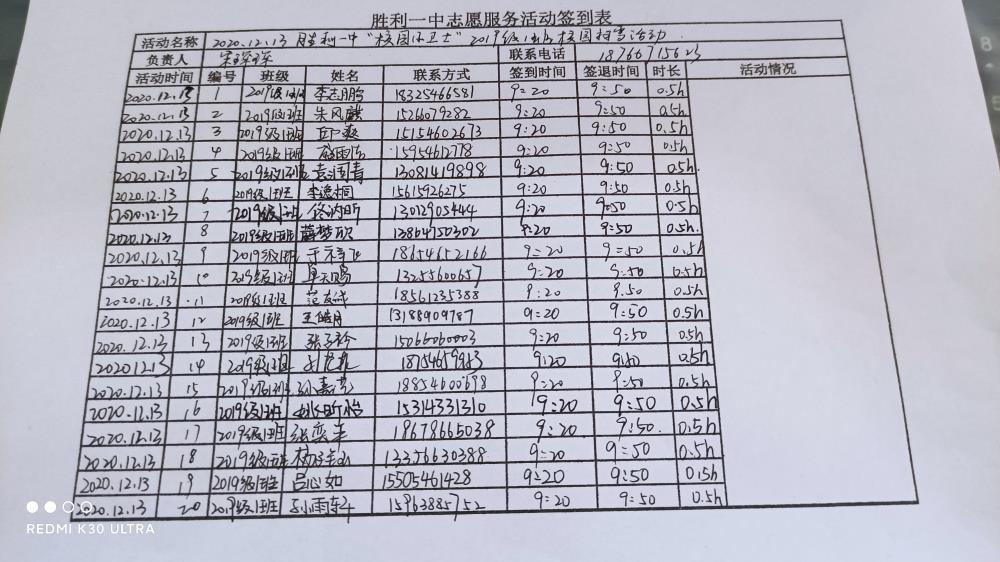 胜利一中志愿服务活动签到表
活动名称 2020.12.13 胜利一中"校园小卫士"2019级1班校园打扫活动
负责人 联系电话
活动时间 编号 班级 姓名 联系方式 签到时间 签退时间 时长 活动情况
2020.12.13 1 2019级1班 李志鹏 18325466581 9:20 9:50 0.5h
2020.12.13 2 2019级1班 朱风麟 1526079282 9:20 9:50 0.5h
2020.12.13 3 2019级1班 15154602673 9:20 9:50 0.5h
2020.12.13 4 2019级1班 15954612778 9:20 9:50 0.5h
2020.12.13 5 2019级1班 袁润青 13081419898 9:20 9:50 0.5h
2020.12.13 6 2019级1班 李逸桐 15615926275 9:20 9:50 0.5h
2020.12.13 7 2019级1班 13012905444 9:20 9:50 0.5h
2020.12.13 8 2019级1班 13864150302 9:20 9:50 0.5h
2020.12.13 9 2019级1班 18654652166 9:20 9:50 0.5h
2020.12.13 10 2019级1班 13255600657 9:20 9:50 0.5h
2020.12.13 11 2019级1班 18561235388 9:20 9:50 0.5h
2020.12.13 12 2019级1班 王皓月 13188909787 9:20 9:50 0.5h
2020.12.13 13 2019级1班 15066060003 9:20 9:50 0.5h
2020.12.13 14 2019级1班 9:20 9:50 0.5h
2020.12.13 15 2019级1班 18854600698 9:20 9:50 0.5h
2020.12.13 16 2019级1班 15314331310 9:20 9:50 0.5h
2020.12.13 17 2019级1班 张奕辛 18678665038 9:20 9:50 0.5h
2020.12.13 18 2019级1班 13356630388 9:20 9:50 0.5h
2020.12.13 19 2019级1班 吕心如 15505461428 9:20 9:50 0.5h
2020.12.13 20 2019级1班 15963885752 9:20 9:50 0.5h
REDMI K30 ULTRA